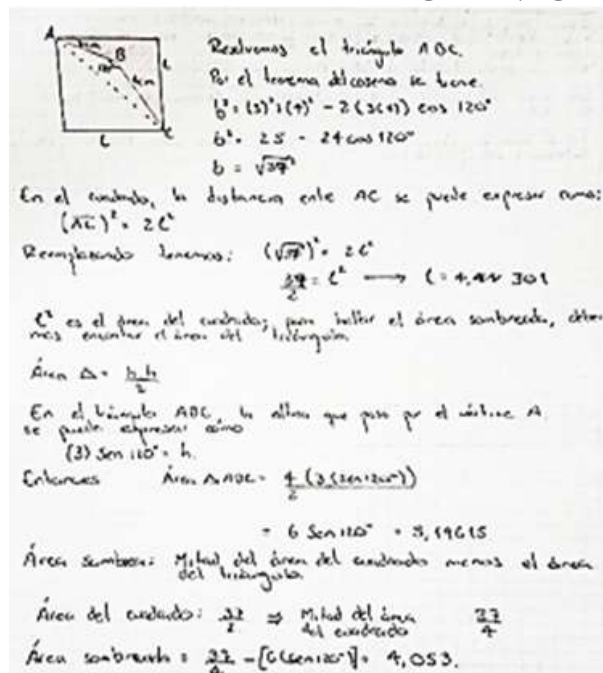 A
B
C
L
L
Resolvemos el triángulo ABC.
Por el teorema del coseno se tiene.
b² = (3)² + (4)² - 2(3(4)) cos 120°
b² = 25 - 24 cos 120°
b = √37
En el cuadrado, la distancia entre AC se puede expresar como:
(AC)² = 2L²
Reemplazando tenemos: (√37)² = 2L²
37/2 = L² → L = 4,301
L² es el área del cuadrado; para hallar el área sombreada, debe-
mos encontrar el área del triángulo
Área △ = b.h/2
En el triángulo ABC, la altura que pasa por el vértice A.
se puede expresar cómo
(3) Sen 120° = h.
Entonces Área △ ABC = 4/2 (3 (Sen 120°))
= 6 Sen 120° = 5,19615
Área sombrea: Mitad del área del cuadrado menos el área
del triángulo
Área del cuadrado: 37/2 ⇒ Mitad del área
del cuadrado 37/4
Área sombreada = 37/4 - [6(sen 120°)] = 4,053.